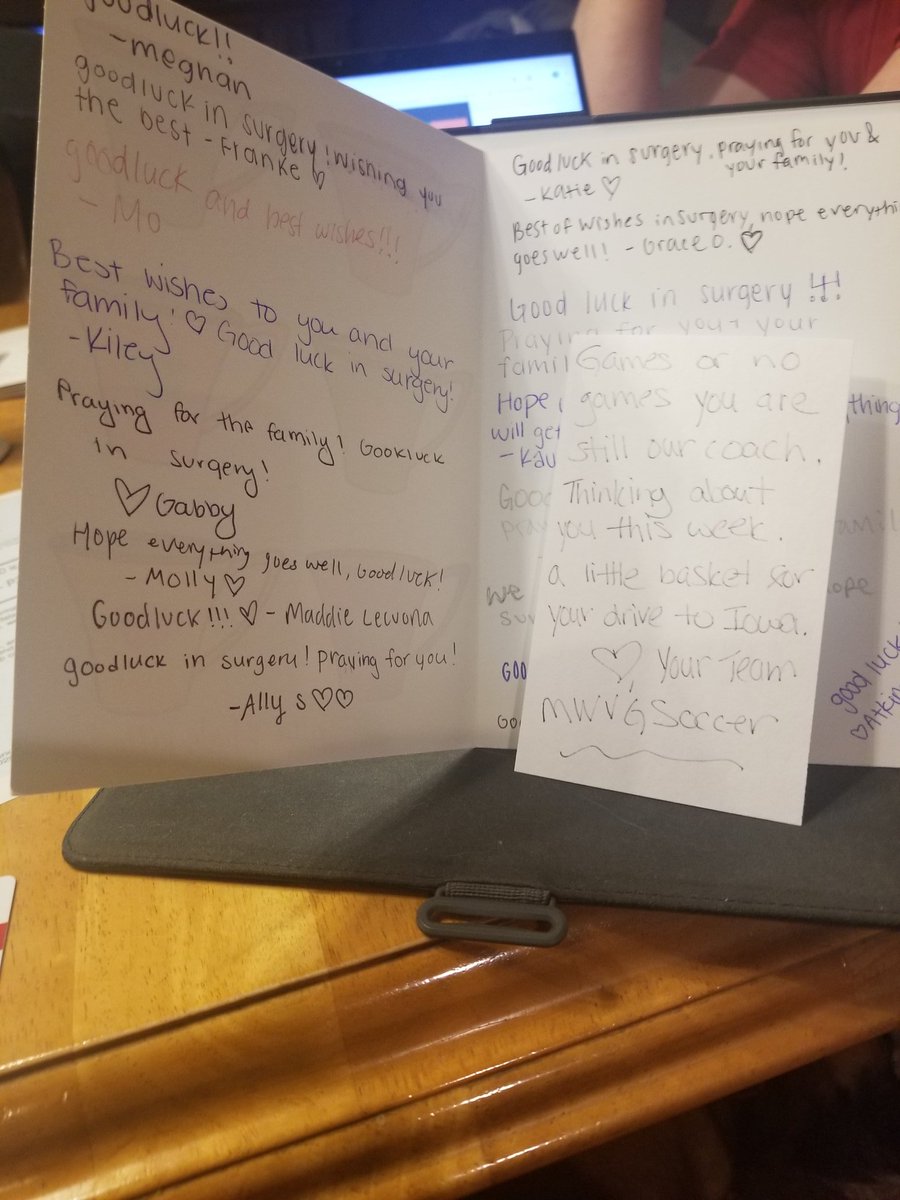 goodluck!!
-meghan
goodluck in surgery! wishing you
the best - Franke ♡
goodluck and best wishes!!!
- Mo
Best wishes to you and your
family! ♡ Good luck in surgery!
-Kiley
Praying for the family! Gookluck
in surgery!
♡ Gabby
Hope everything goes well, Goodluck!
- Molly ♡
Goodluck!!! ♡ - Maddie
goodluck in surgery! praying for you!
-Ally S ♡♡
Goodluck in surgery. praying for you &
your family!
- Katie ♡
Best of wishes in surgery, hope everythi
goes well! - Grace D. ♡
Good luck in surgery !!!
Praying for you + your
famil
Hope
thing
will get
- Kau
Good
pray
famil
We
ope
sur
GOO
Goo
good luck
♡Atkin
Games or no
games you are
still our coach.
Thinking about
you this week.
a little basket for
your drive to Iowa.
♡, Your Team
MWVG Soccer